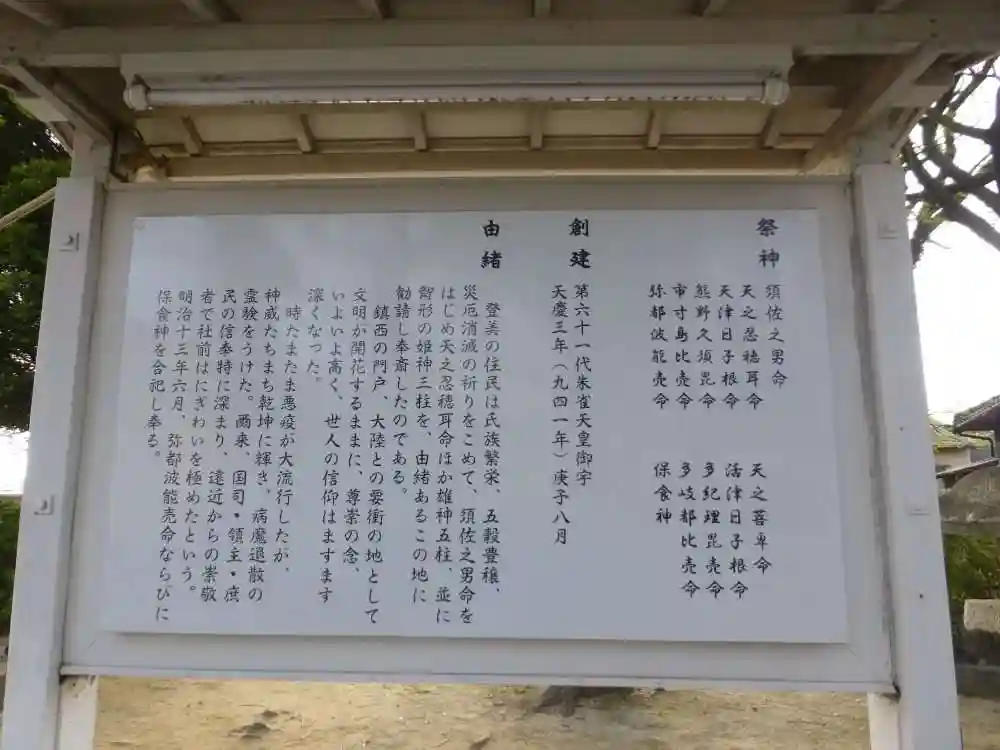 祭神
須佐之男命
天之忍穂耳命
天津日子根命
熊野久須毘命
市寸島比売命
弥都波能売命
天之菩卑命
活津日子根命
多紀理毘売命
多岐都比売命
保食神
創建
第六十一代朱雀天皇御宇
天慶三年（九四一年）庚子八月
由緒
登美の住民は氏族繁栄、五穀豊穣、
災厄消滅の祈りをこめて、須佐之男命を
はじめ天之忍穂耳命ほか雄神五柱、並に
劉形の姫神三柱を、由緒あるこの地に
勧請し奉斎したのである。
鎮西の門戸、大陸との要衝の地として
文明が開花するままに、尊崇の念、
いよいよ高く、世人の信仰はますます
深くなった。
時たまたま悪疫が大流行したが、
神威たちまち乾坤に輝き、病魔退散の
霊験をうけた。爾来、国司・領主・庶
民の信奉特に深まり、遠近からの崇敬
者で社前はにぎわいを極めたという。
明治十三年六月、弥都波能売命ならびに
保食神を合祀し奉る。